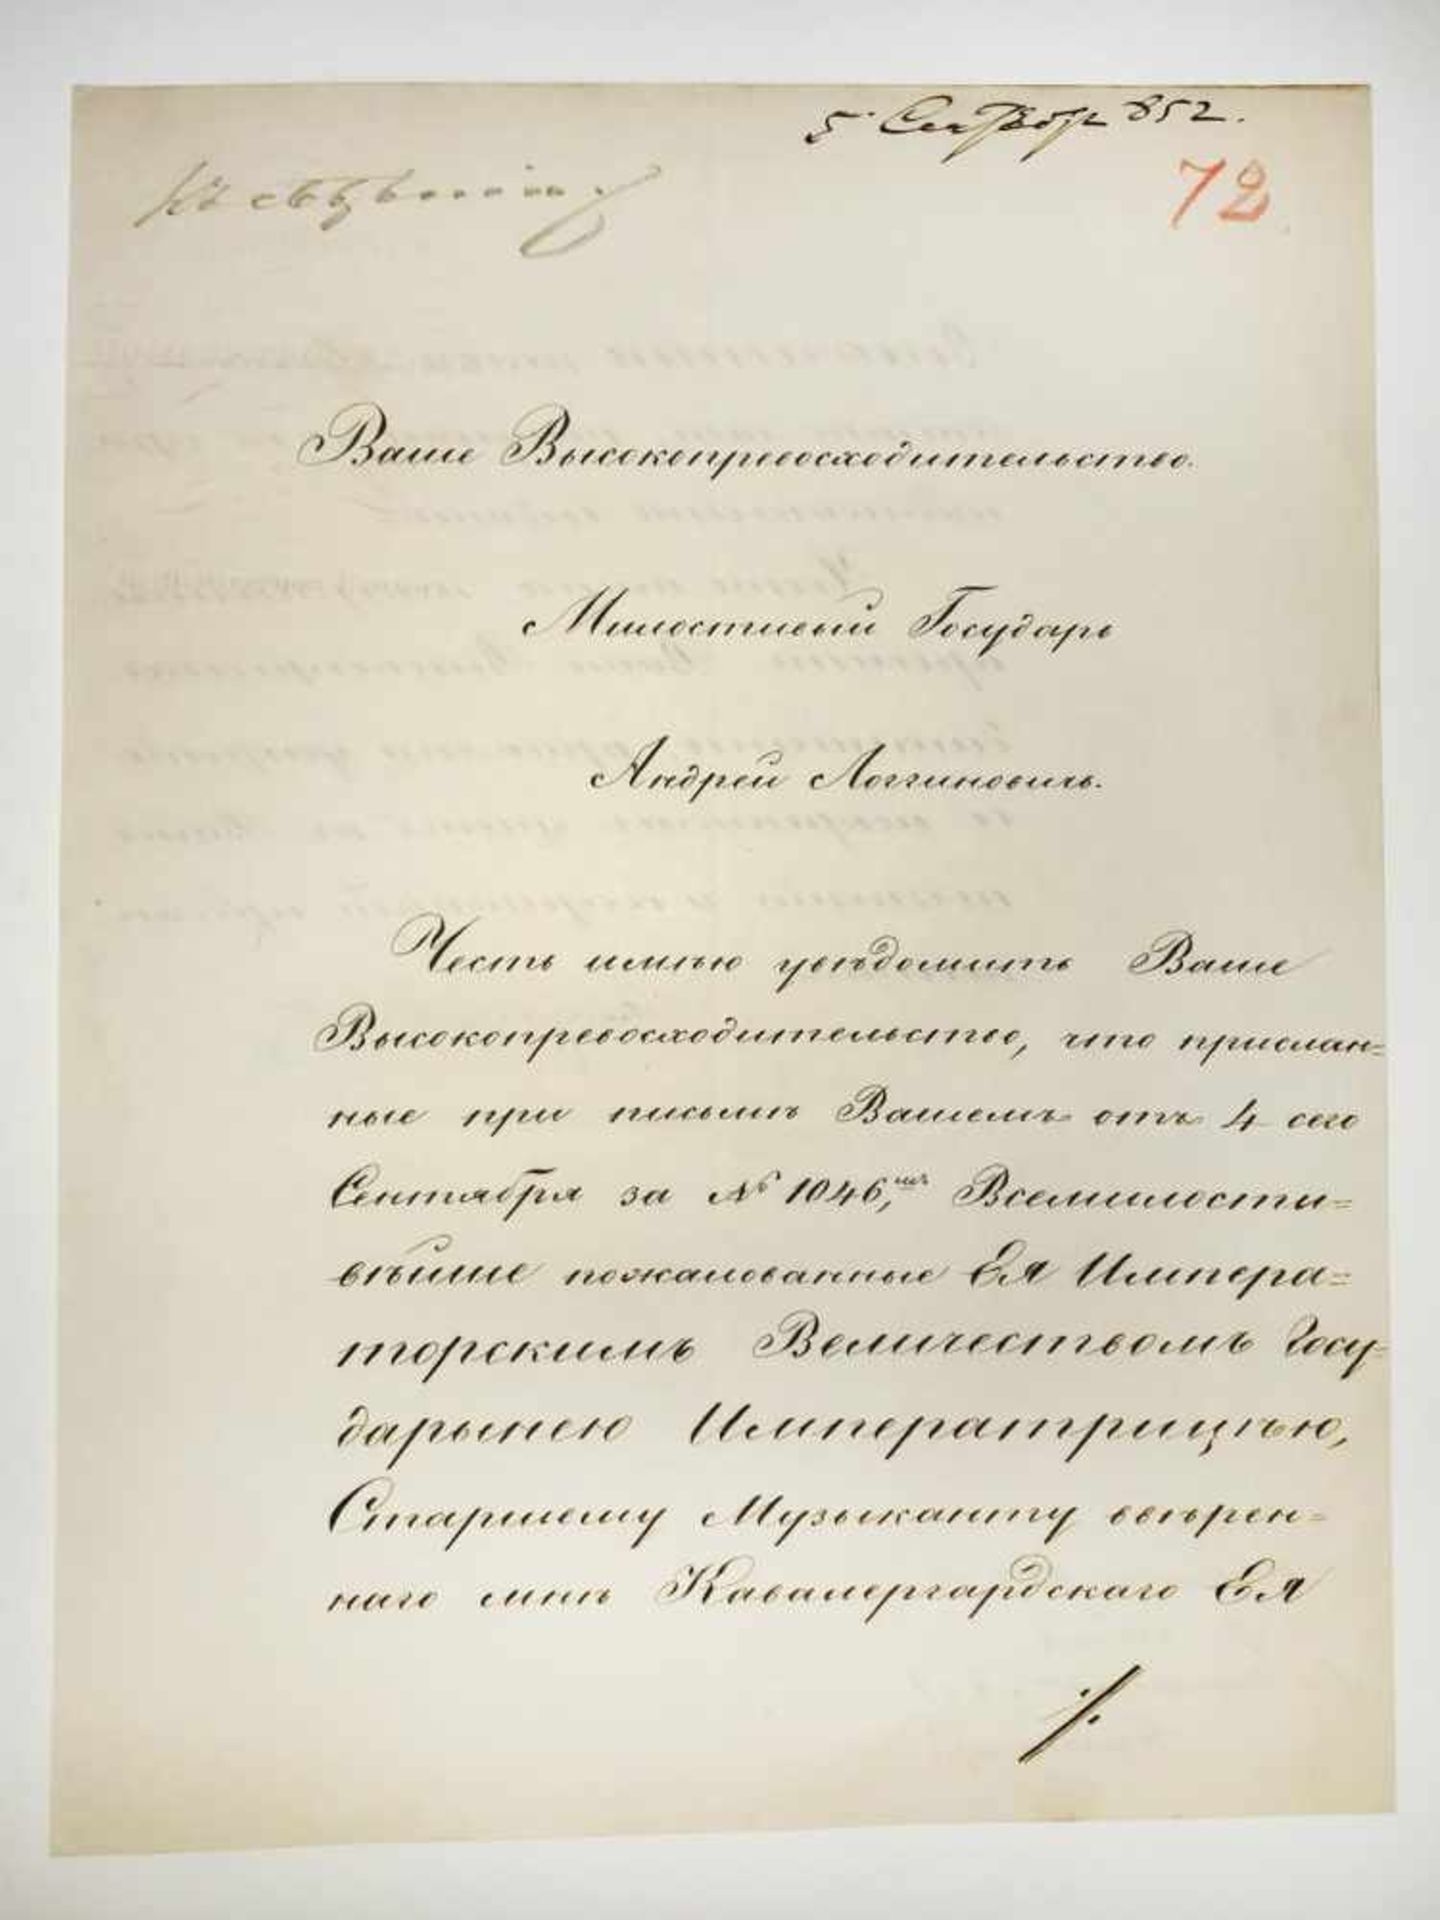 5 Сентябр 852.
72
Къ свѣдѣнію
Ваше Высокопревосходительство.
Милостивый Государь
Андрей Логгиновичъ.
Честь имѣю увѣдомить Ваше
Высокопревосходительство, что прислан=
ные при письмѣ Вашемъ отъ 4 сего
Сентября за № 1046,мъ Всемилости=
вѣйше пожалованные Ея Импера=
торскимъ Величествомъ Госу=
дарынею Императрицѣю,
Старшему Музыканту ввѣрен=
наго мнѣ Кавалергардскаго Ея
./.